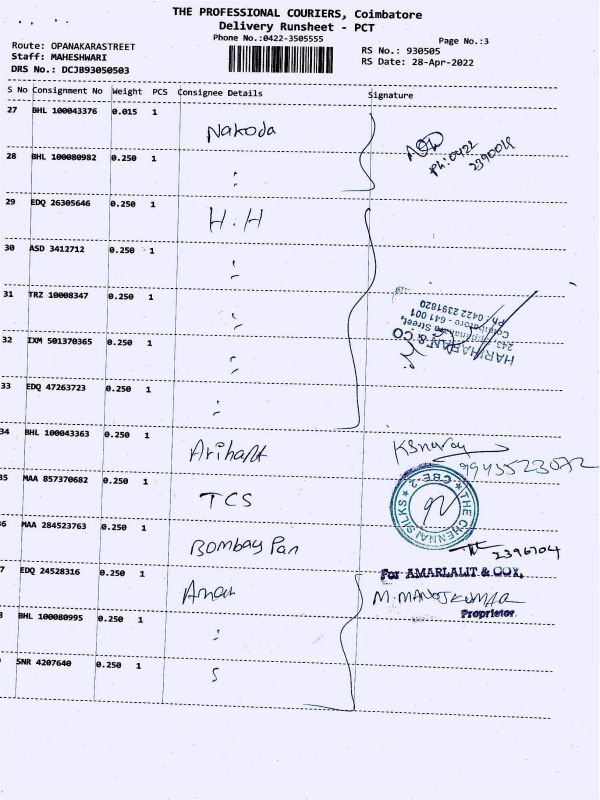 THE PROFESSIONAL COURIERS, Coimbatore
Delivery Runsheet - PCT
Phone No.:0422-3505555
Page No.:3
Route: OPANAKARASTREET
RS No.: 930505
Staff: MAHESHWARI
RS Date: 28-Apr-2022
DRS No.: DCJB93050503
S No Consignment No Weight PCS Consignee Details Signature
27 BHL 100043376 0.015 1 Nakoda
Ph: 0422
2390019
28 BHL 100080982 0.250 1 "
29 EDQ 26305646 0.250 1 H.H
30 ASD 3412712 0.250 1 "
31 TRZ 10008347 0.250 1 "
HARIHARAN & CO
243, Oppanakara Street,
Coimbatore - 641 001
Ph: 0422 2391820
32 IXM 501370365 0.250 1 "
33 EDQ 47263723 0.250 1 "
34 BHL 100043363 0.250 1 Arihant
99435523072
35 MAA 857370682 0.250 1 TCS
★ THE CHENNAI SILKS ★ CBE-2
6 MAA 284523763 0.250 1 Bombay Pan
2396704
7 EDQ 24528316 0.250 1
For AMARLALIT & COY,
M. MANOJKUMAR
Proprietor
BHL 100080995 0.250 1 "
SNR 4207640 0.250 1